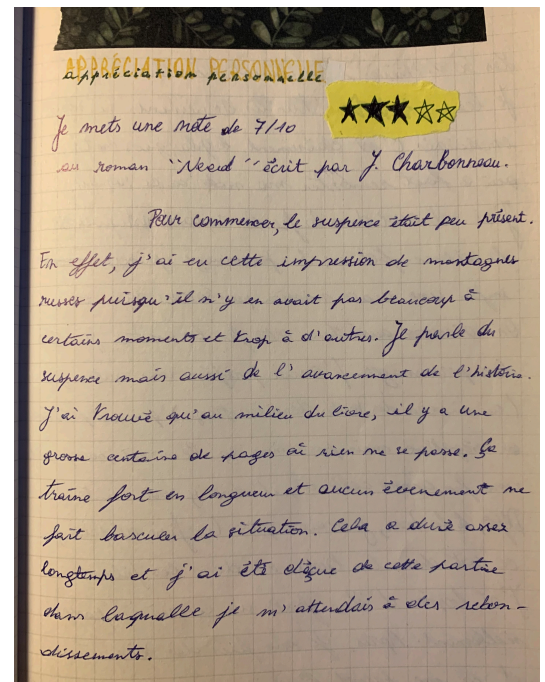 APPRÉCIATION PERSONNELLE
appréciation personnelle
Je mets une note de 7/10
au roman "Need" écrit par J. Charbonneau.
Pour commencer, le suspence était peu présent.
En effet, j'ai eu cette impression de montagnes
russes puisqu'il n'y en avait pas beaucoup à
certains moments et trop à d'autres. Je parle du
suspence mais aussi de l'avancement de l'histoire.
J'ai trouvé qu'au milieu du livre, il y a une
grosse centaine de pages où rien ne se passe. Ça
traine fort en longueur et aucun évenement ne
fait basculer la situation. Cela a duré assez
longtemps et j'ai été déçue de cette partie
dans laquelle je m'attendais à des rebon-
dissements.